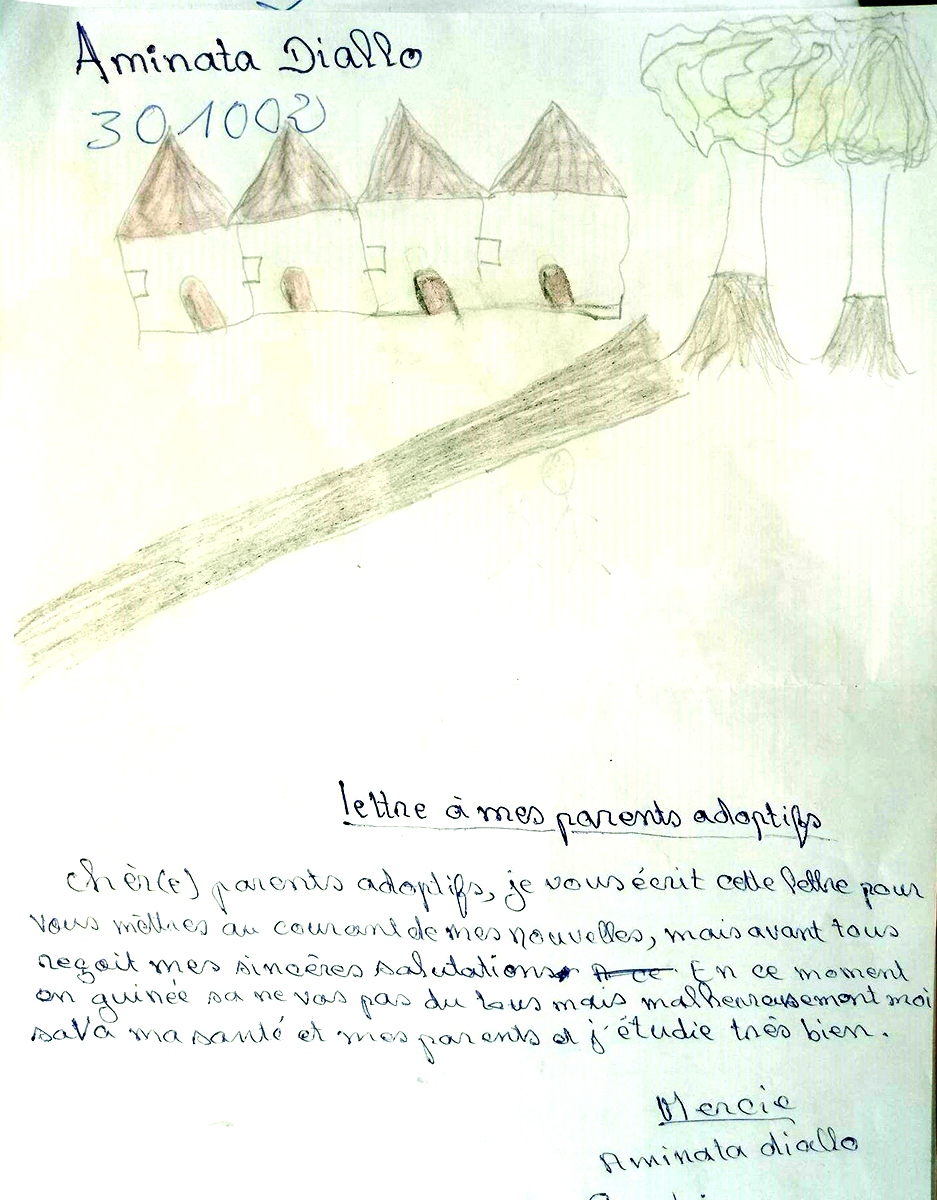 Aminata Diallo
301002
lettre à mes parents adoptifs
chèr(e) parents adoptifs, je vous écrit cette lettre pour
vous mèttres au courant de mes nouvelles, mais avant tous
reçoit mes sincères salutations. En ce moment
on guinée sa ne vas pas du tous mais malheureusement moi
sa va ma santé et mes parents et j'étudie très bien.
Mercie
Aminata diallo